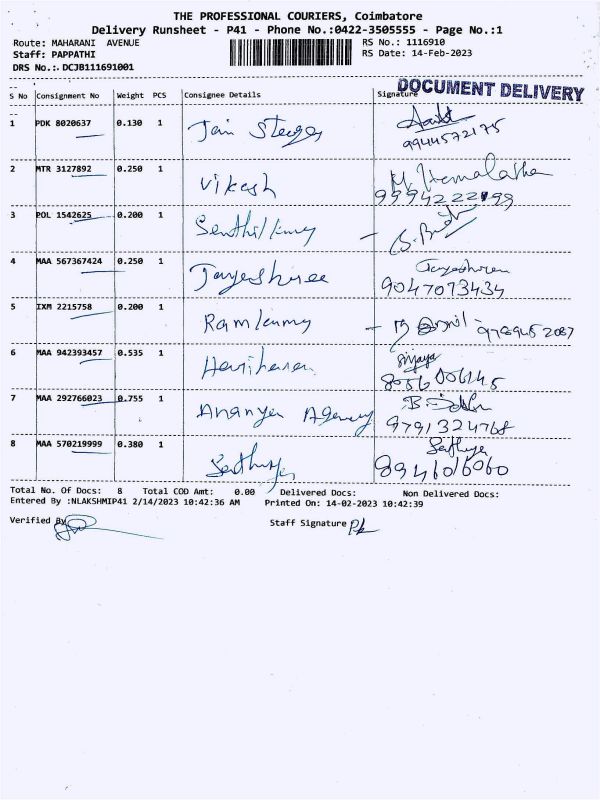 THE PROFESSIONAL COURIERS, Coimbatore
Delivery Runsheet - P41 - Phone No.:0422-3505555 - Page No.:1
Route: MAHARANI AVENUE RS No.: 1116910
Staff: PAPPATHI RS Date: 14-Feb-2023
DRS No.: DCJB111691001
DOCUMENT DELIVERY
S No Consignment No Weight PCS Consignee Details Signature
1 PDK 8020637 0.130 1 Jain
9944572175
2 MTR 3127892 0.250 1 Vikesh M. Hemalatha
3 POL 1542625 0.200 1
4 MAA 567367424 0.250 1 Jayeshree Jayeshree
9047073434
5 IXM 2215758 0.200 1
6 MAA 942393457 0.535 1 Hariharan
8056006145
7 MAA 292766023 0.755 1 Ananya Agency
9791324768
8 MAA 570219999 0.380 1
8946016060
Total No. Of Docs: 8 Total COD Amt: 0.00 Delivered Docs: Non Delivered Docs:
Entered By :NLAKSHMIP41 2/14/2023 10:42:36 AM Printed On: 14-02-2023 10:42:39
Verified By Staff Signature